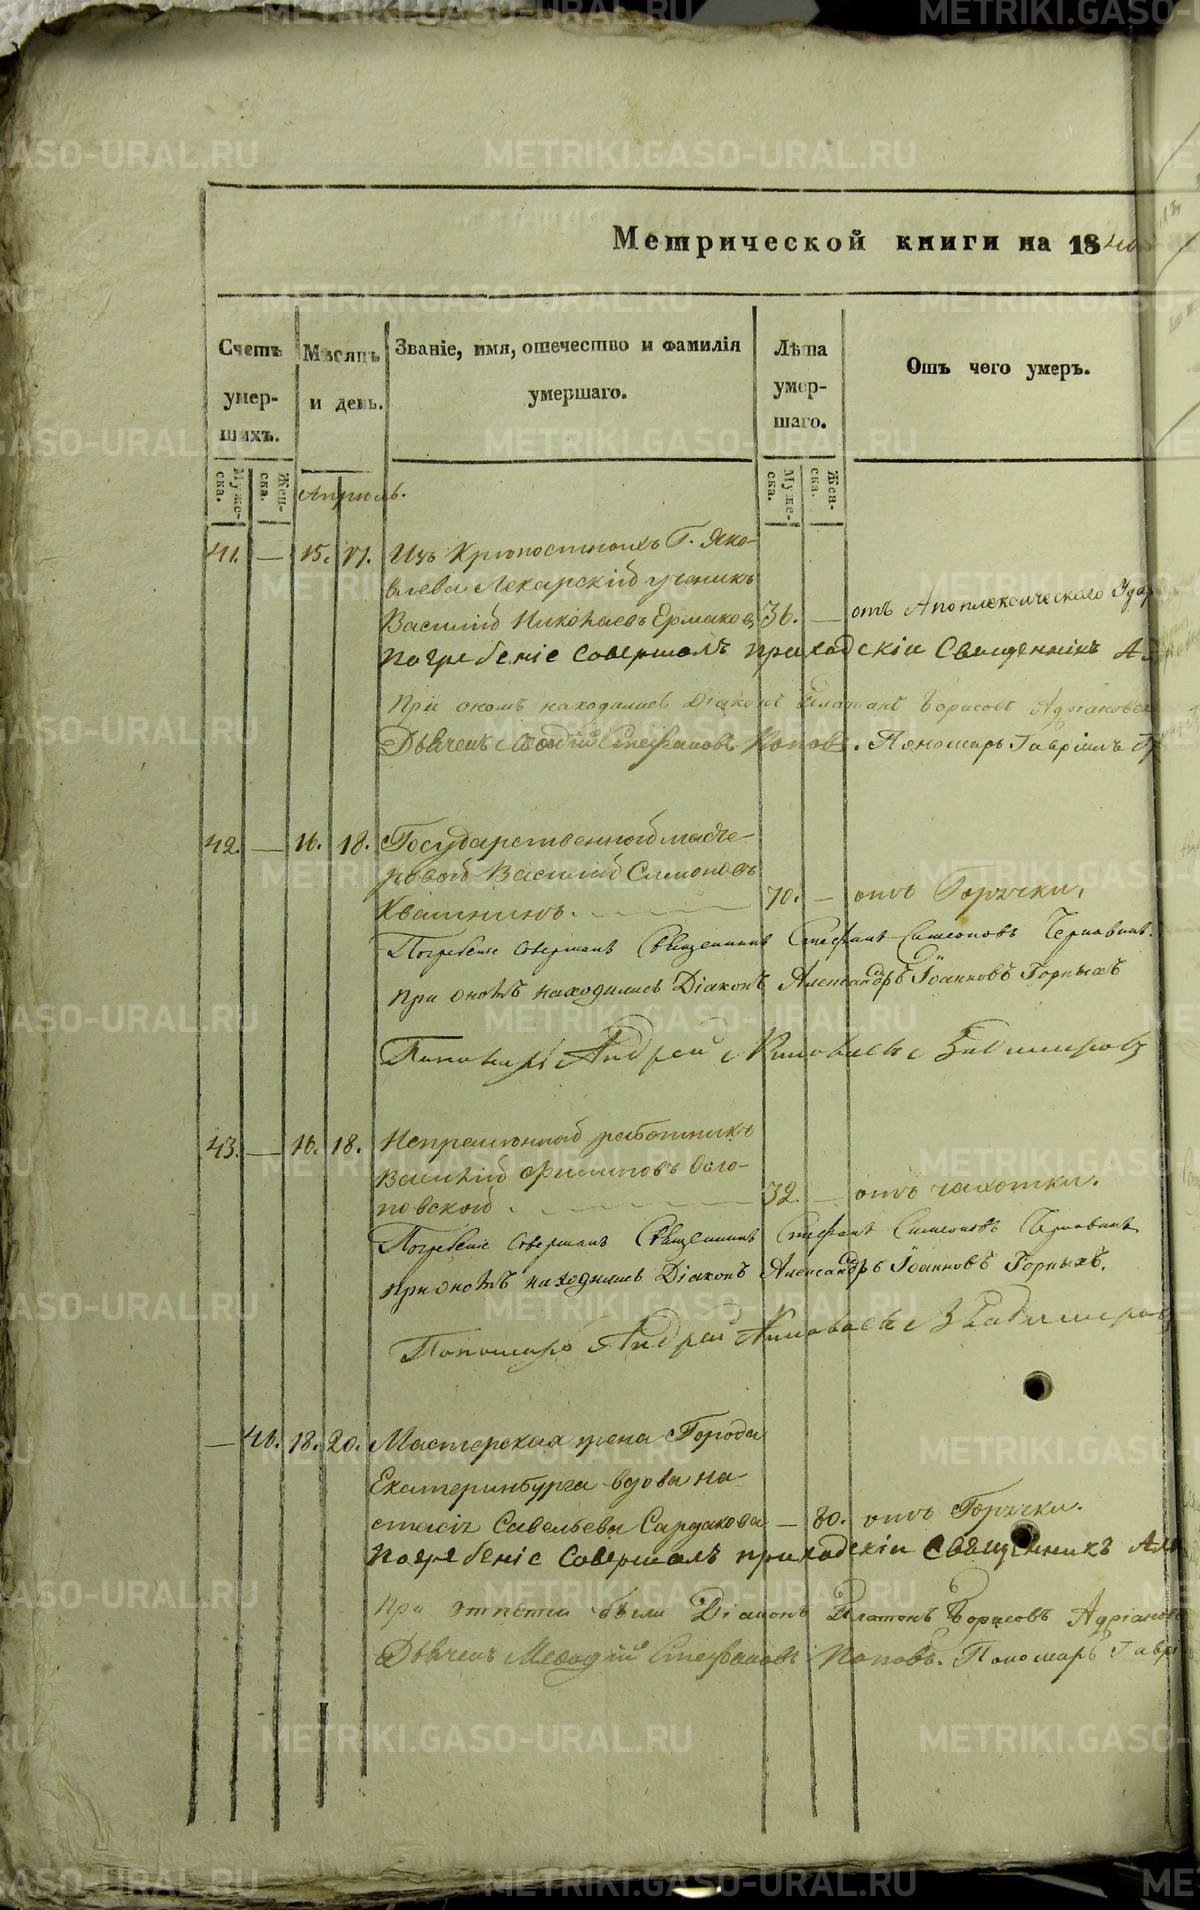 Метрической книги на 1840
Счетъ умер- шихъ.
Мѣсяцъ и день.
Званіе, имя, отечество и фамилія умершаго.
Лѣта умер- шаго.
Отъ чего умеръ.
Муже- ска.
Жен- ска.
Муже- ска.
Жен- ска.
Апрель.
41. — 15. 17. Изъ Крѣпостныхъ Г. Яко-
влева Лекарскій ученикъ
Василій Николаевъ Ермаковъ 36. — отъ Апоплексическаго Удар
Погребеніе совершалъ приходскіи Священникъ Ал
При ономъ находились Діаконъ Платонъ Борисовъ Адріановск
Дьячекъ Меѳодій Стефановъ Поповъ. Пономарь Гавріилъ
42. — 16. 18. Государственной масте-
ровой Василій Симоновъ
Квашнинъ. 70. — отъ Горячки.
Погребеніе совершалъ Священникъ Стефанъ Симеоновъ Чернавинъ.
При ономъ находились Діаконъ Александръ Іоанновъ Горныхъ
Пономарь Андрей
43. — 16. 18. Непремѣнной работникъ
Василій Филиповъ Осло-
повской. 32. — отъ чахотки.
Погребеніе совершалъ Священникъ Стефанъ Симеоновъ Чернавинъ
при ономъ находились Діаконъ Александръ Іоанновъ Горныхъ.
Пономарь Андрей
— 46. 18. 20. Мастерская жена Города
Екатеринбурга вдова На-
стасія Савельева Сардакова — 80. отъ Горячки.
Погребеніе совершалъ приходскіи священникъ Але
При отпетіи были Діаконъ Платонъ Борисовъ Адріанов
Дьячекъ Меѳодій Стефановъ Поповъ. Пономарь Гаврі
METRIKI.GASO-URAL.RU